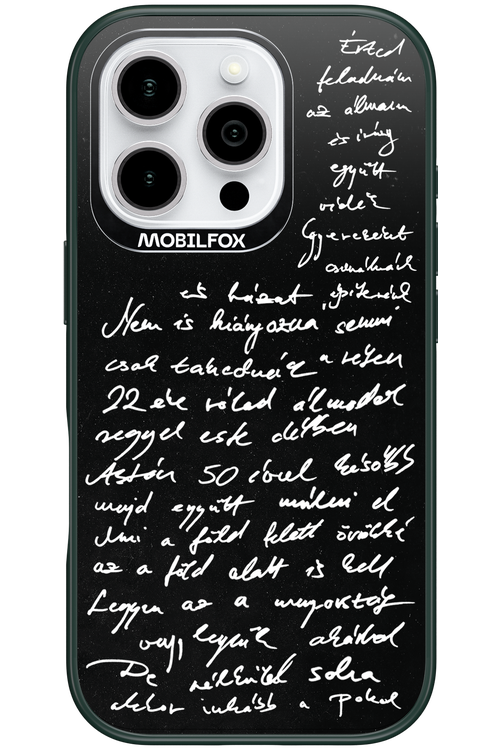 MOBILFOX
Érted
feladnám
az álmaim
és így
együtt
Gyerekeket
csinálnánk
és házat építenénk
Nem is hiányozna semmi
csak takednél a részem
22 éve rólad álmodok
reggel este délben
Aztán 50 évvel később
majd együtt múlni el
Ami a föld felett örökké
az a föld alatt is kell
Legyen az a mennyország
vagy legyünk akárhol
De nélküled soha
akkor inkább a pokol